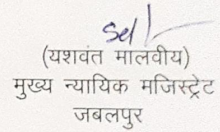 Sd/-
(यशवंत मालवीय)
मुख्य न्यायिक मजिस्ट्रेट
जबलपुर